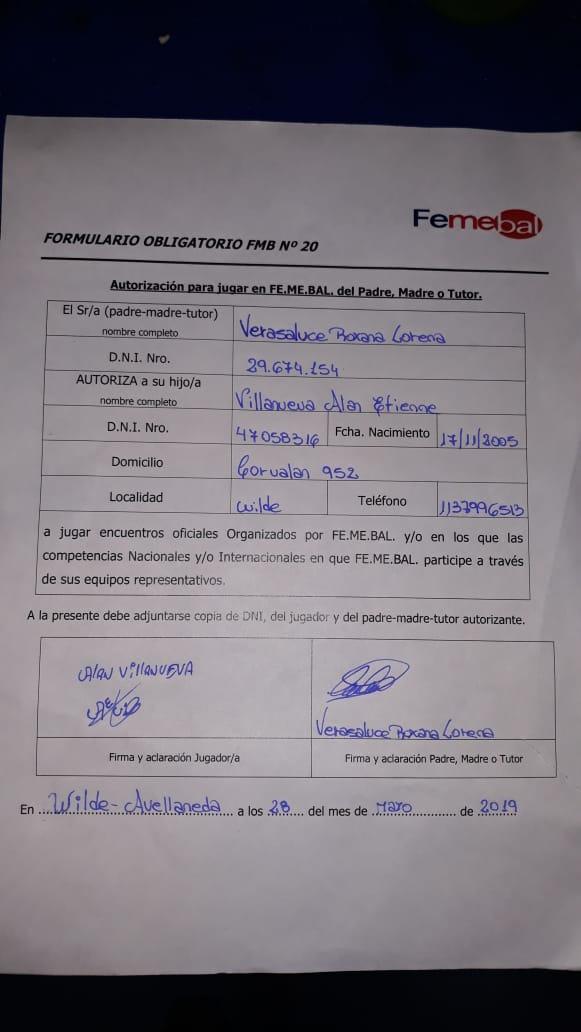 Femebal
FORMULARIO OBLIGATORIO FMB Nº 20
Autorización para jugar en FE.ME.BAL. del Padre, Madre o Tutor.
El Sr/a (padre-madre-tutor)
nombre completo
Verasaluce Roxana Lorena
D.N.I. Nro.
29.674.154
AUTORIZA a su hijo/a
nombre completo
Villanueva Alan Etienne
D.N.I. Nro.
47058316
Fcha. Nacimiento
17/11/2005
Domicilio
Corvalan 952
Localidad
Wilde
Teléfono
1137996513
a jugar encuentros oficiales Organizados por FE.ME.BAL. y/o en los que las
competencias Nacionales y/o Internacionales en que FE.ME.BAL. participe a través
de sus equipos representativos.
A la presente debe adjuntarse copia de DNI, del jugador y del padre-madre-tutor autorizante.
Alan Villanueva
Verasaluce Roxana Lorena
Firma y aclaración Jugador/a
Firma y aclaración Padre, Madre o Tutor
En ....Wilde-Avellaneda.... a los .28..... del mes de .............. de .2019